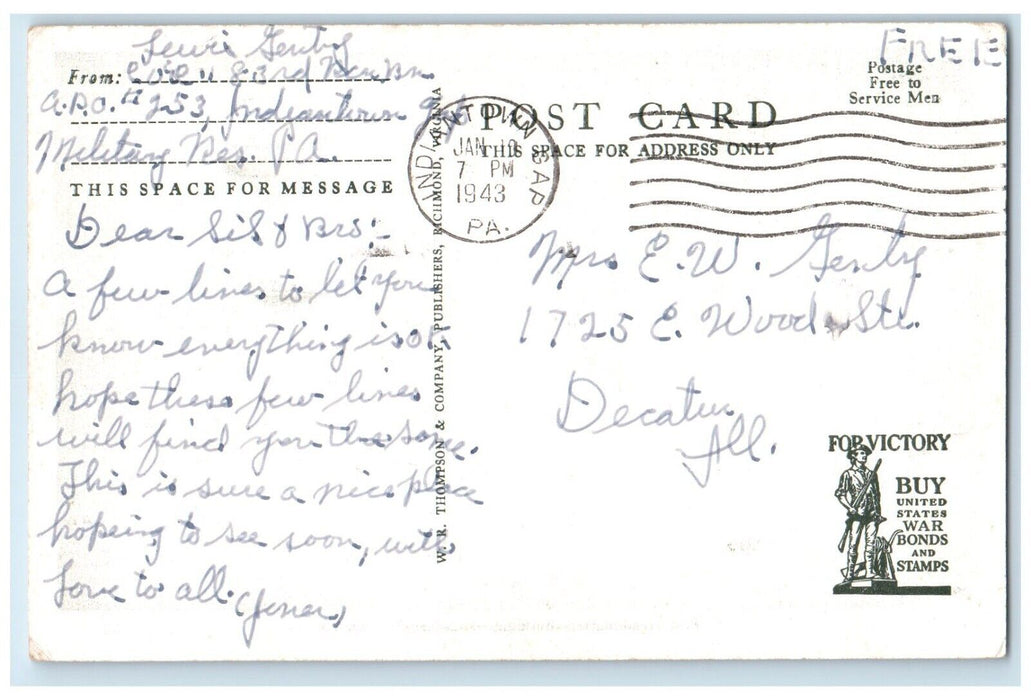 Lewis Gentry
From: Co. 83rd Bn
A.P.O. # 253, Indiantown Gap
Military Res. PA.
THIS SPACE FOR MESSAGE
Dear Sis & Bro:-
A few lines to let you
know everything is ok
hope these few lines
will find you the same.
This is sure a nice place
hopeing to see soon, with
Love to all.
W. R. THOMPSON & COMPANY, PUBLISHERS, RICHMOND, VIRGINIA
INDIANTOWN GAP
JAN
7 PM
1943
PA.
FREE
Postage
Free to
Service Men
POST CARD
THIS SPACE FOR ADDRESS ONLY
Mrs E. W. Gentry
1725 E. Wood Str.
Decatur
Ill.
FOR VICTORY
BUY
UNITED
STATES
WAR
BONDS
AND
STAMPS